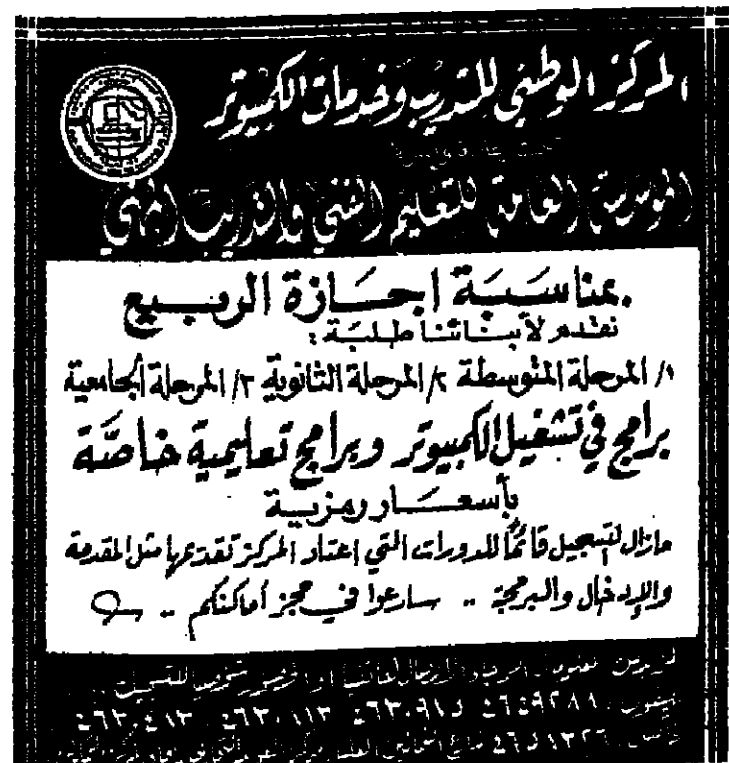 المركز الوطني للتدريب وخدمات الكمبيوتر
المؤسسة العامة للتعليم الفني والتدريب المهني
بمناسبة اجازة الربيع
نقدم لأبنائنا طلبة :
١/ المرحلة المتوسطة ٢/ المرحلة الثانوية ٣/ المرحلة الجامعية
برامج في تشغيل الكمبيوتر وبرامج تعليمية خاصة
بأسعار رمزية
مازال التسجيل قائماً للدورات التي اعتاد المركز تقديمها مثل المقدمة
والإدخال والبرمجة .. سارعوا في حجز أماكنكم ..